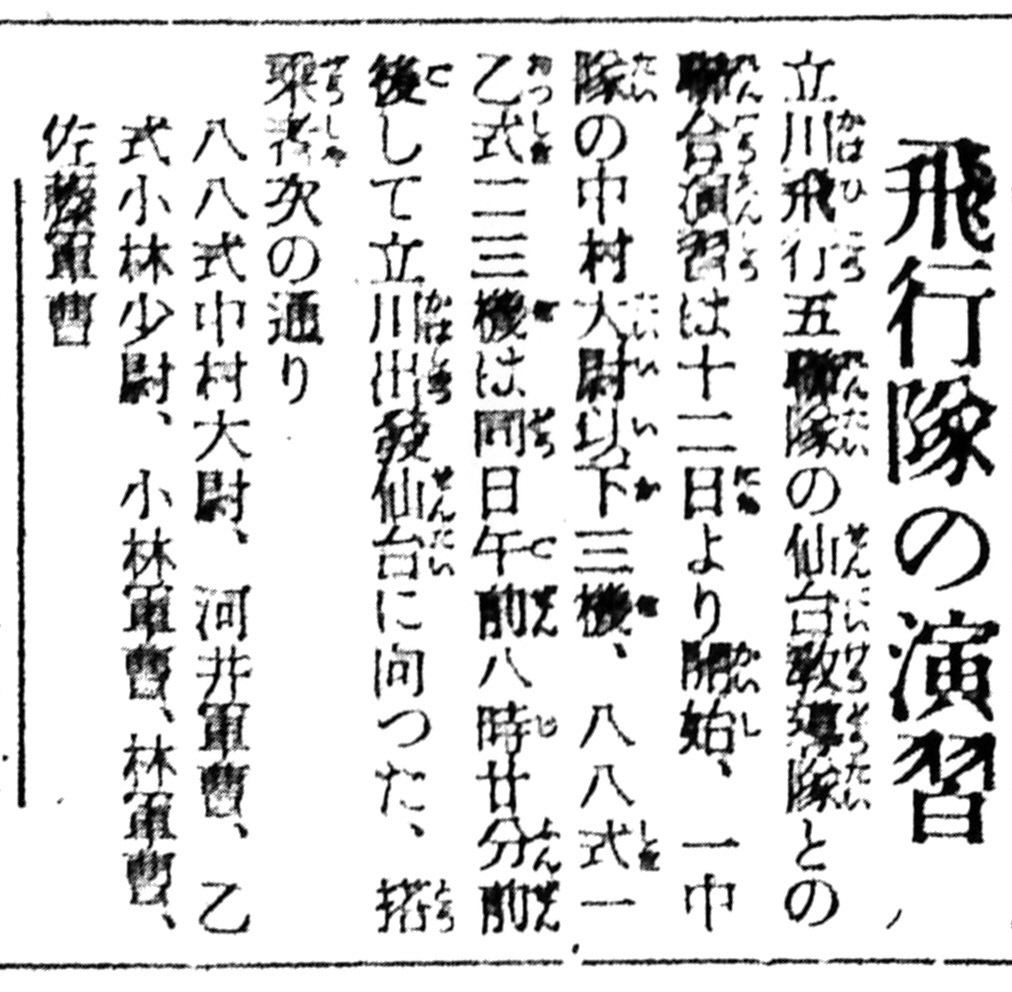 飛行隊の演習
立川飛行五聯隊の仙台教導隊との
聯合演習は十二日より開始、一中
隊の中村大尉以下三機、八八式一
乙式二三機は同日午前八時廿分前
後して立川出発仙台に向つた、搭
乗者次の通り
八八式中村大尉、河井軍曹、乙
式小林少尉、小林軍曹、林軍曹、
佐藤軍曹